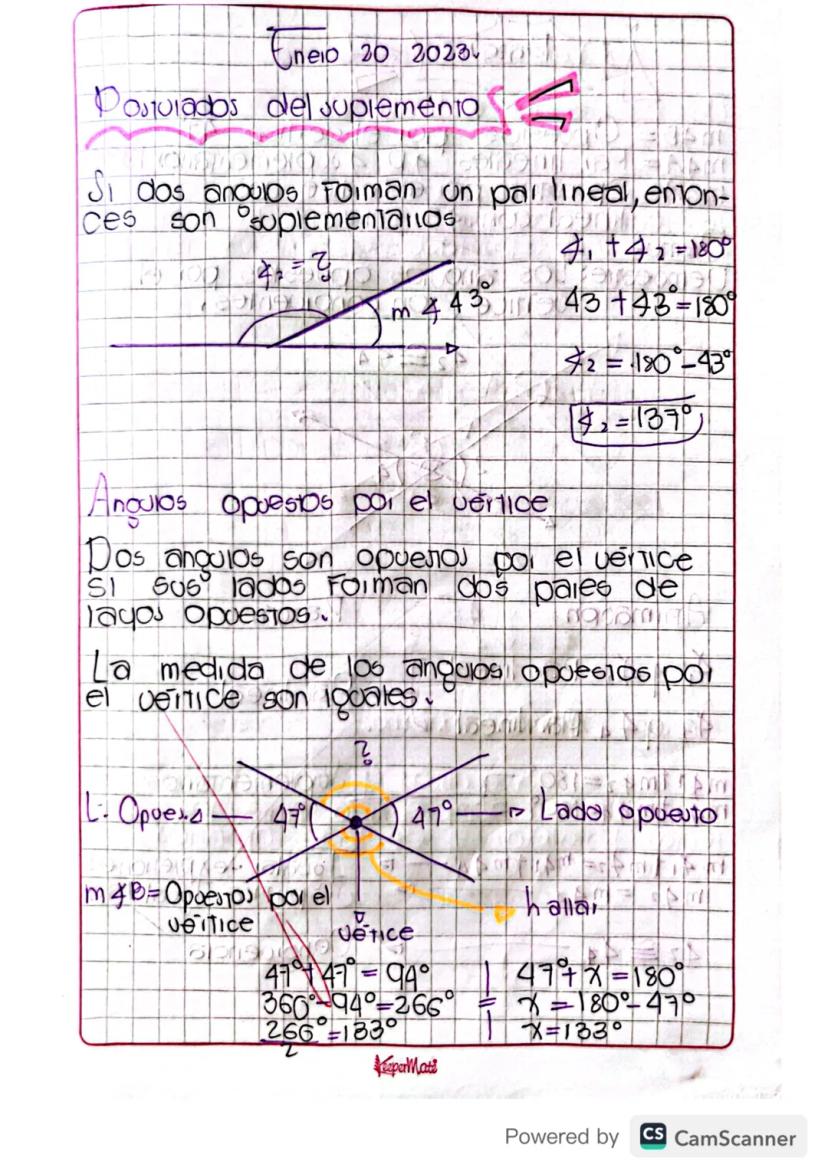 Enero 20 2023.
Postulados del suplemento
Si dos angulos Forman un par lineal, enton-
ces son suplementarios
∡1 + ∡2 = 180°
∡2 = ?
m ∡ 43°
43 + 43° = 180°
∡2 = 180° - 43°
∡2 = 137°
Angulos opuestos por el vértice
Dos angulos son opuestos por el vértice
si sus lados Forman dos pares de
rayos opuestos.
La medida de los angulos opuestos por
el vértice son iguales.
?
L. Opues.
47°
47°
Lado opuesto
m∡B = Opuestos por el
vértice
hallar
vétice
47° + 47° = 94°
360° - 94° = 266°
266° = 133°
2
=
47° + x = 180°
x = 180° - 47°
x = 133°
KeeperMate
Powered by CS CamScanner